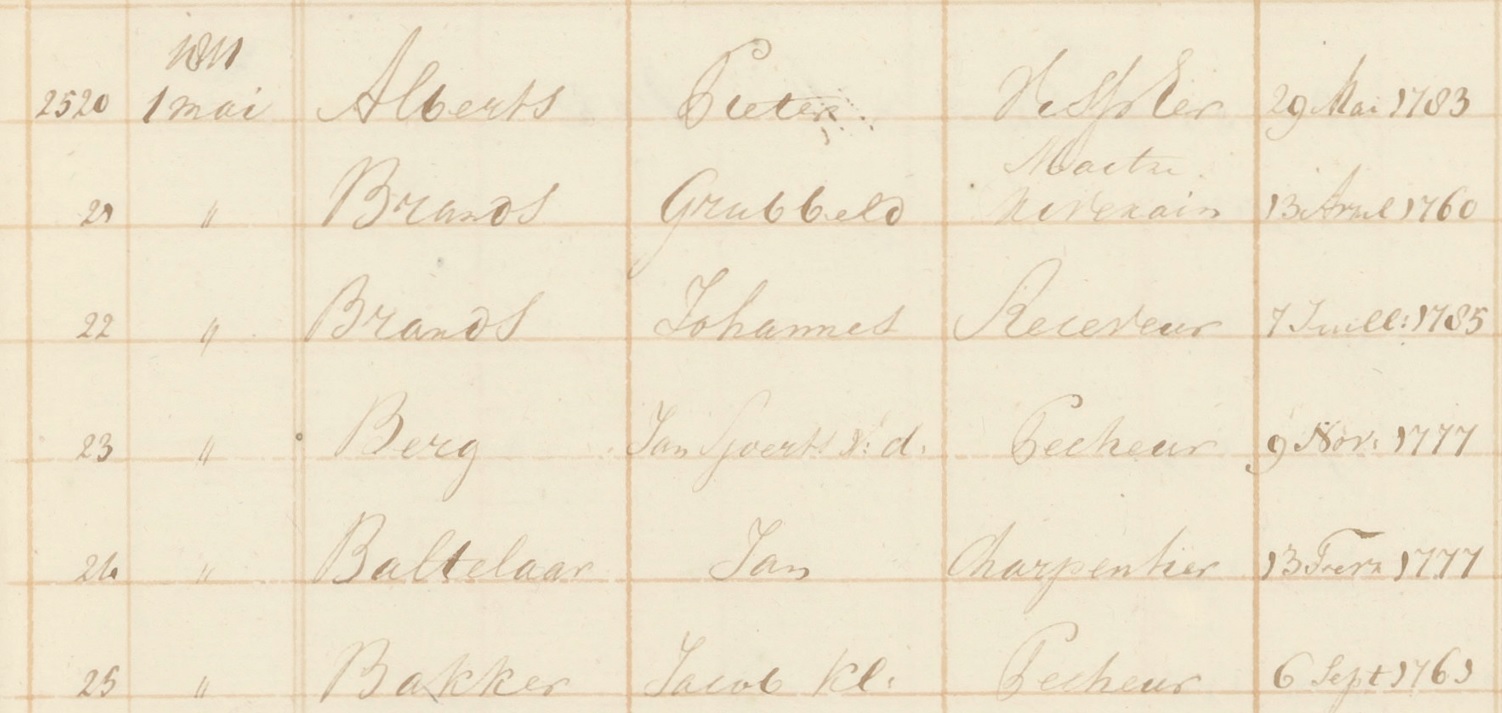 1811
2520 1 mai Alberts Pieter 29 Mai 1783
Maitre
21 " Brands Grubbeld 13 Avril 1760
22 " Brands Johannes Receveur 7 Juill: 1785
23 " Berg Jan Sjoerts v: d: Pecheur 9 Nov: 1777
24 " Baltelaar Jan Charpentier 13 Fevr 1777
25 " Bakker Jacob Kl: Pecheur 6 Sept 1761